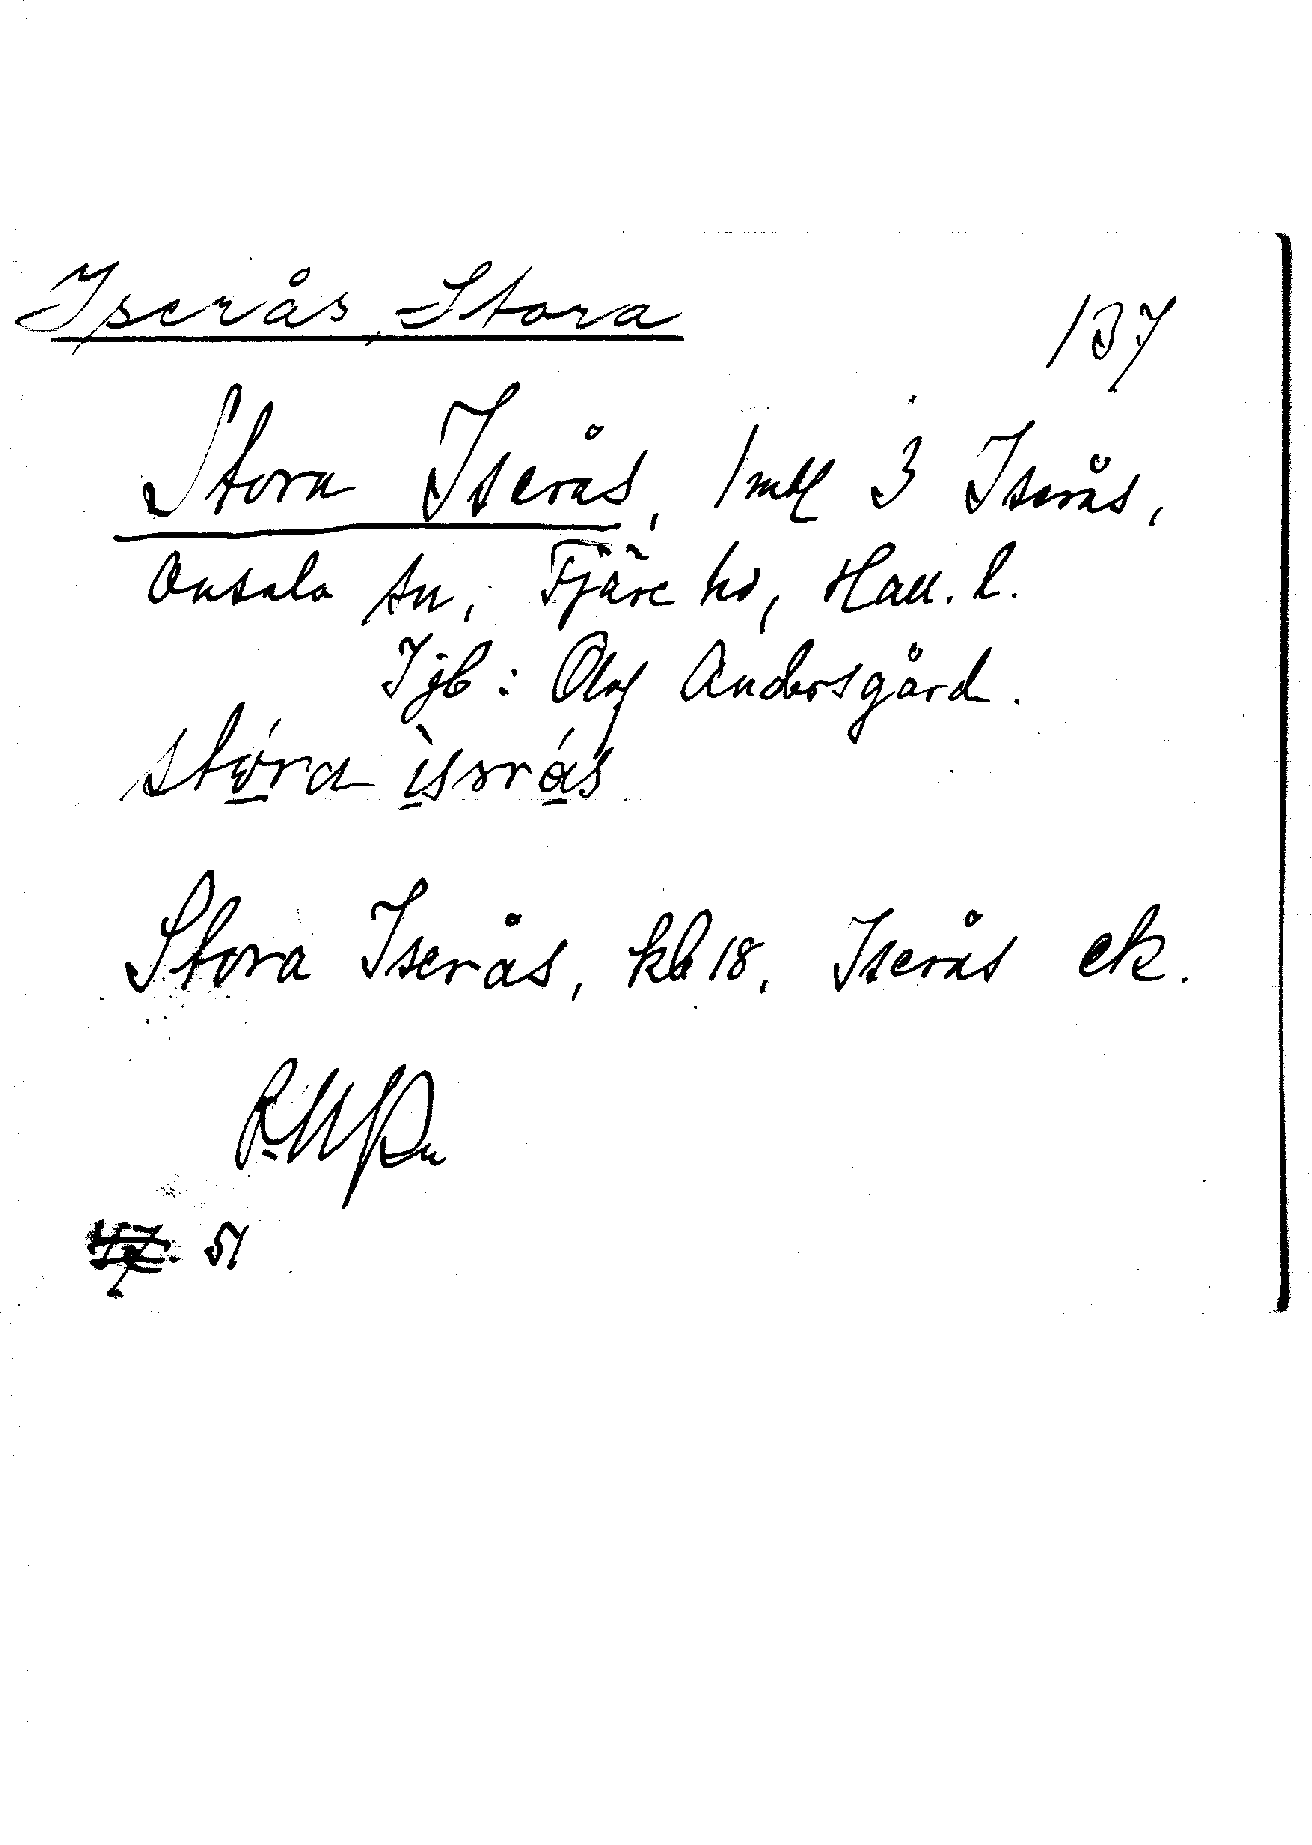 Iserås, Stora
137
Stora Iserås, 1 mtl 3 Iserås,
Onsala sn, Fjäre hd, Hall. l.
Igb: Olof Andersgård.
stóra ìsərás
Stora Iserås, kbl 18, Iserås ek.
51